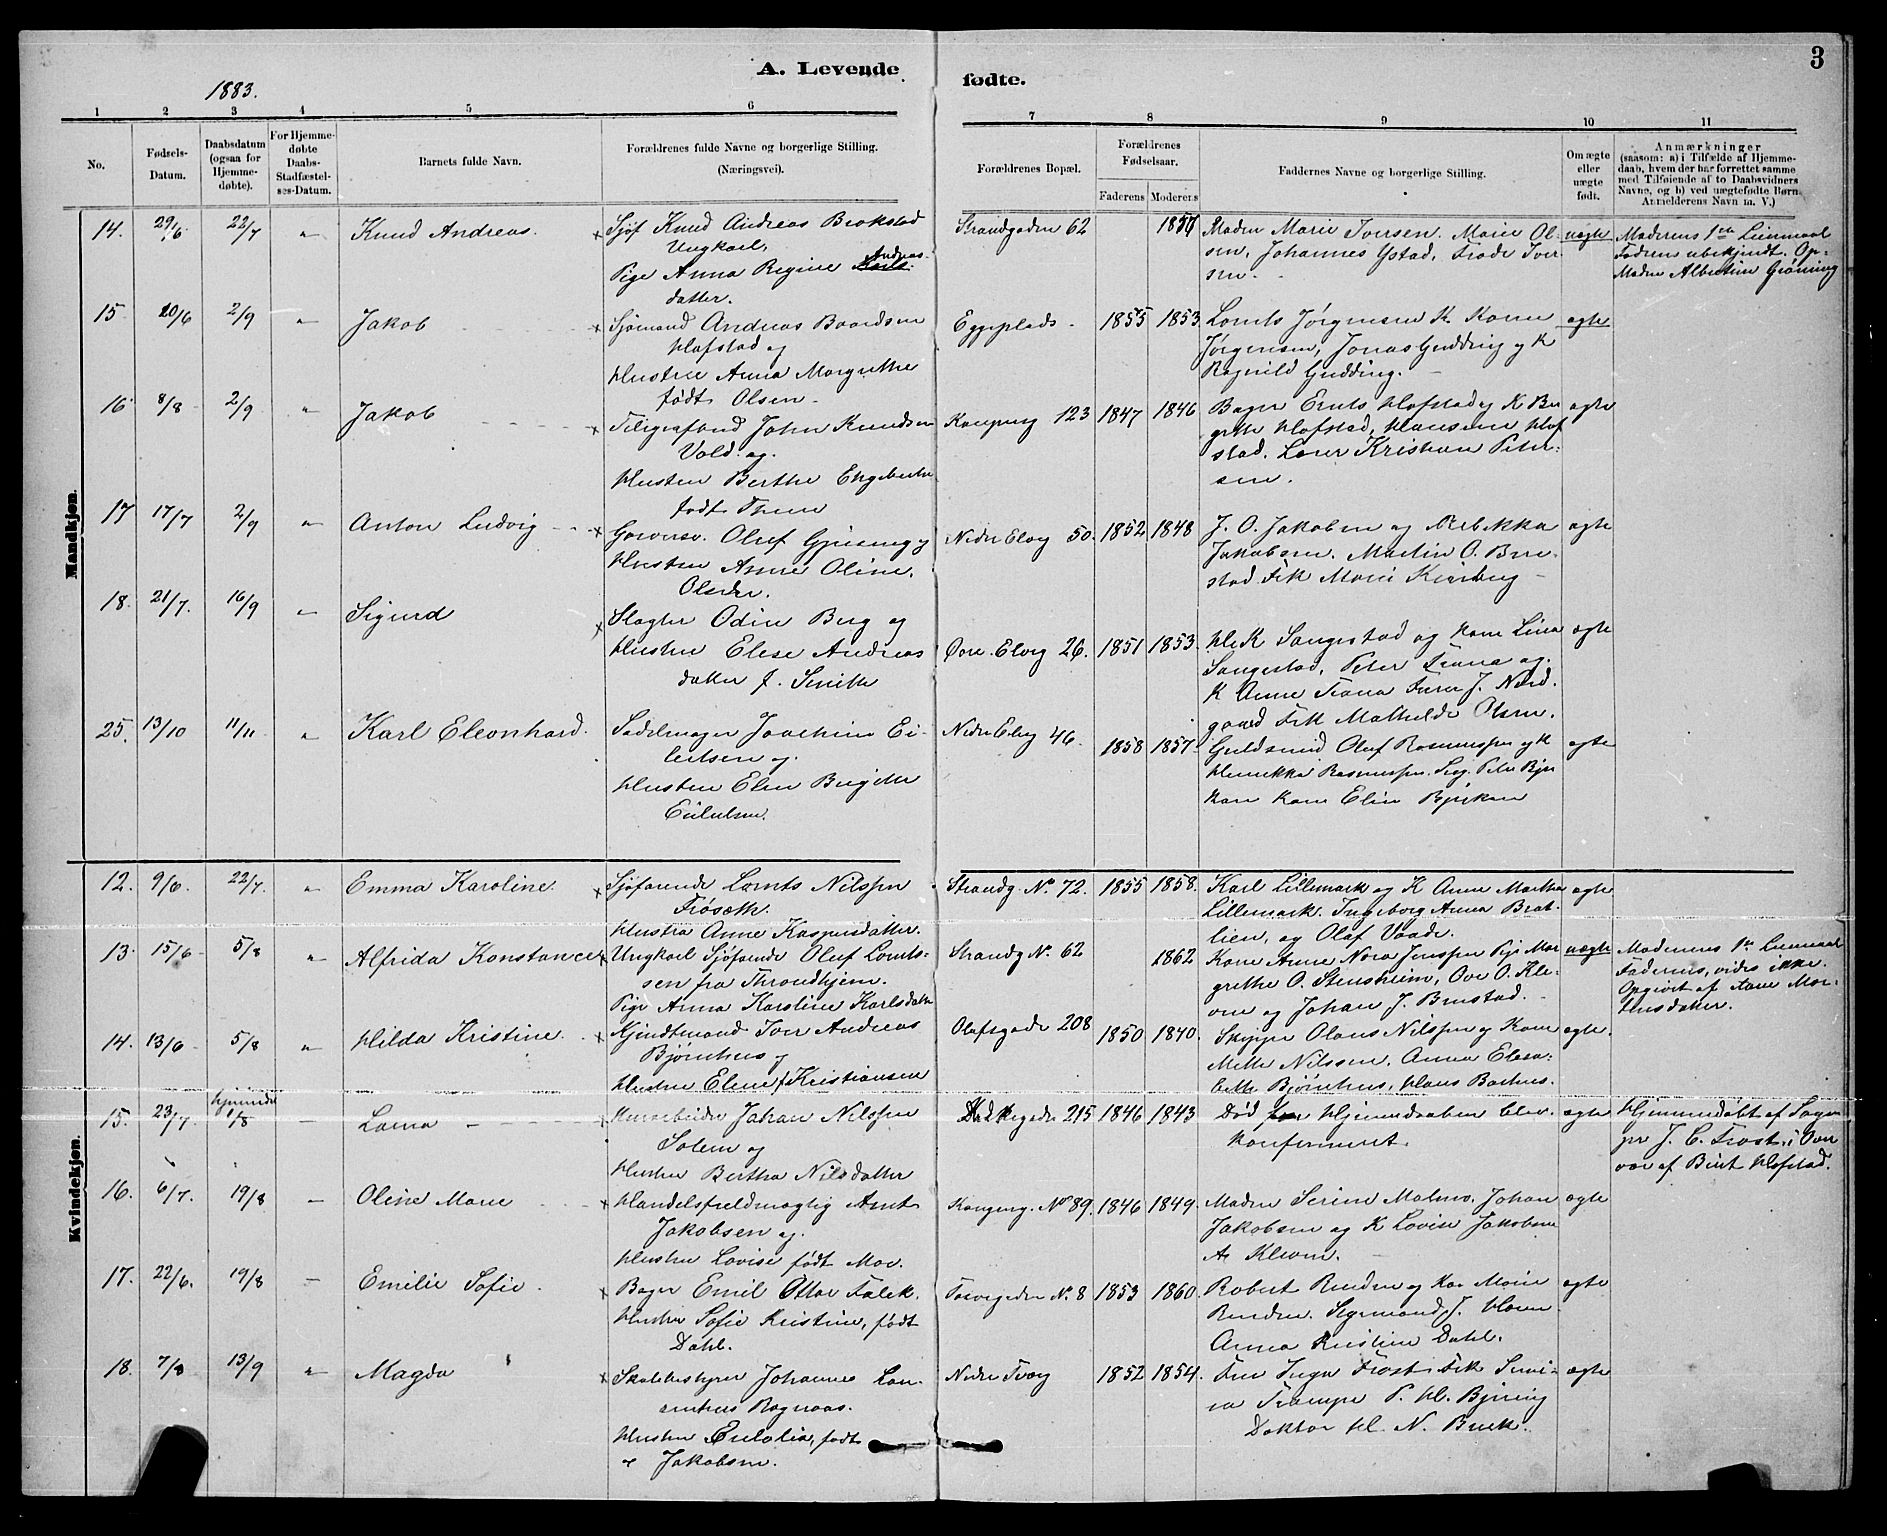 A. Levende fødte.
3
1883.
1 2 3 4 5 6 7 8 9 10 11
No.
Fødsels-Datum.
Daabsdatum (ogsaa for Hjemmedøbte).
For Hjemmedøbte Daabs-Stadfæstelses-Datum.
Barnets fulde Navn.
Forældrenes fulde Navne og borgerlige Stilling. (Næringsvei).
Forældrenes Bopæl.
Forældrenes Fødselsaar.
Faderens Moderens
Faddernes Navne og borgerlige Stilling.
Om ægte eller uægte født.
Anmærkninger
(saasom: a) i Tilfælde af Hjemmedaab, hvem der har forrettet samme med Tilføiende af to Daabsvidners Navne, og b) ved uægtefødte Børn Anmelderens Navn m. V.)
Mandkjøn.
14. 29/6 22/7 " Knud Andreas.
Sjøf Knud Andreas Brokstad
Ungkarl,
Pige Anna Regine Andreas-
datter.
Strandgaden 62 1857
Madm Marie Iversen. Marie Ol-
sen, Johannes Ystad, Frode Iver-
sen.
uægte
Moderens 1ste Leiermaal
Faderens ubekjendt. Op-
Madm Albertine Grønning
15 20/6 2/9 " Jakob
Sjømand Andreas Baardsen
Hofstad og
Hustru Anna Margrethe
født Olsen.
Eggeplads 1855 1853
Lornts Jørgensen K. Karen
Jørgensen, Jonas Gudding og K
Ragnild Gudding.
ægte
16 8/8 2/9 " Jakob
Telegrafbud John Knudsen
Vold og
Hustru Berthe Engebertha
født Thun
Kongensg 123 1847 1846
Bager Ernts Hofstad og K Ber
grethe Hofstad, Hansine Hof
stad. Lærer Kristian Peter-
sen.
ægte
17 17/7 2/9 " Anton Ludvig
Garversv. Oluf Gjeising og
Hustru Anne Oline
Olsdtr.
Nedre Elvg 50. 1852 1848
J. O. Jakobsen og Rebekka
Jakobsen. Martin O. Bru-
stad Frk Marie Kierberg
ægte
18. 21/7. 16/9 " Sigurd
Slagter Odin Berg og
Hustru Elese Andreas
datter f. Smith
Øvre Elvg 26. 1851 1853.
H K Sangestad og Kone Lina
Sangestad, Peter Trana og
K Anne Trana Furer J. Nord-
gaard Frk Mathilde Olsen.
ægte
25. 13/10 11/11 " Karl Eleonhard.
Sadelmager Joachim Ei-
lertsen og
Hustru Elen Birgitte
Eilertsen.
Nedre Elvg 46. 1858 1857
Guldsmed Oluf Rasmussen og K
Henrikka Rasmussen. Sog. Peter Bjer
kan Kone Elin Bjerkan
ægte
Kvindekjøn.
12. 9/6. 22/7. " Emma Karoline.
Sjøfarende Lornts Nilssen
Frøseth.
Hustru Anne Kaspersdatter.
Strandg. No. 72. 1855 1858.
Karl Lillemark og K Anne Martha
Lillemark. Ingeborg Anna Brat-
lien, og Olaf Vaade.
ægte
13. 15/6 5/8 " Alfrida Konstance
Ungkarl Sjøfarende Oluf Lornts-
sen fra Throndhjem.
Pige Anna Karoline Karlsdatter
Strandg No. 62 1862
Kone Anne Nora Jenssen Pige Mar
grethe O. Stensheim, Ove O. Kle-
ven og Johan J. Brustad.
uægte
Moderenes 1ste Leiermaal
Faderens, vides ikke.
Opgivet af Kone Mar-
thusdatter.
14. 13/6 5/8 " Hilda Kristine.
Kjendtmand Iver Andreas
Bjørnhus og
Hustru Elene f Kristiansen
Olafsgade 208 1850 1840.
Skipper Olaus Nilssen og Kone
Mette Nilssen, Anna Elesa-
beth Bjørnhus, Hans Barhus.
ægte.
15. 23/7. hjemmed 1/8 Laura
Murarbeider Johan Nilssen
Solem og
Hustru Bertha Nilsdatter
215 1846 1843
Død før Hjemmedaaben blev
konfirmeret.
ægte
Hjemmedøbt af Sogne
pr J. C. Frost i Over
vær af Berit Hofstad.
16. 6/7. 19/8 Oline Marie
Handelsfuldmægtig Arnt
Jakobsen og
Hustru Lovise født Moe.
Kongensg. No 89. 1846 1849.
Madm Serine Malmo. Johan
Jakobsen og K Lovise Jakobsen
A. Kleven.
ægte
17. 22/6. 19/8 Emilie Sofie
Bager Emil Ottar Falck.
Hustru Sofie Kristine, født
Dahl.
Torvegaden No. 8 1853 1860.
Robert Renden og Kone Marie
Renden. Sigmund J. Haven
Anna Kristine Dahl.
ægte
18. 7/8 13/9 " Magda
Skolebestyrer Johannes Lau-
rentius Ragnaas.
Hustru Eulalia, født
Jakobsen.
Nedre Torvg 1852 1854.
Fru Inga Frost Frk Sevi-
na Trampe P. H. Bjøring
Doktor H. N. Buck.
ægte